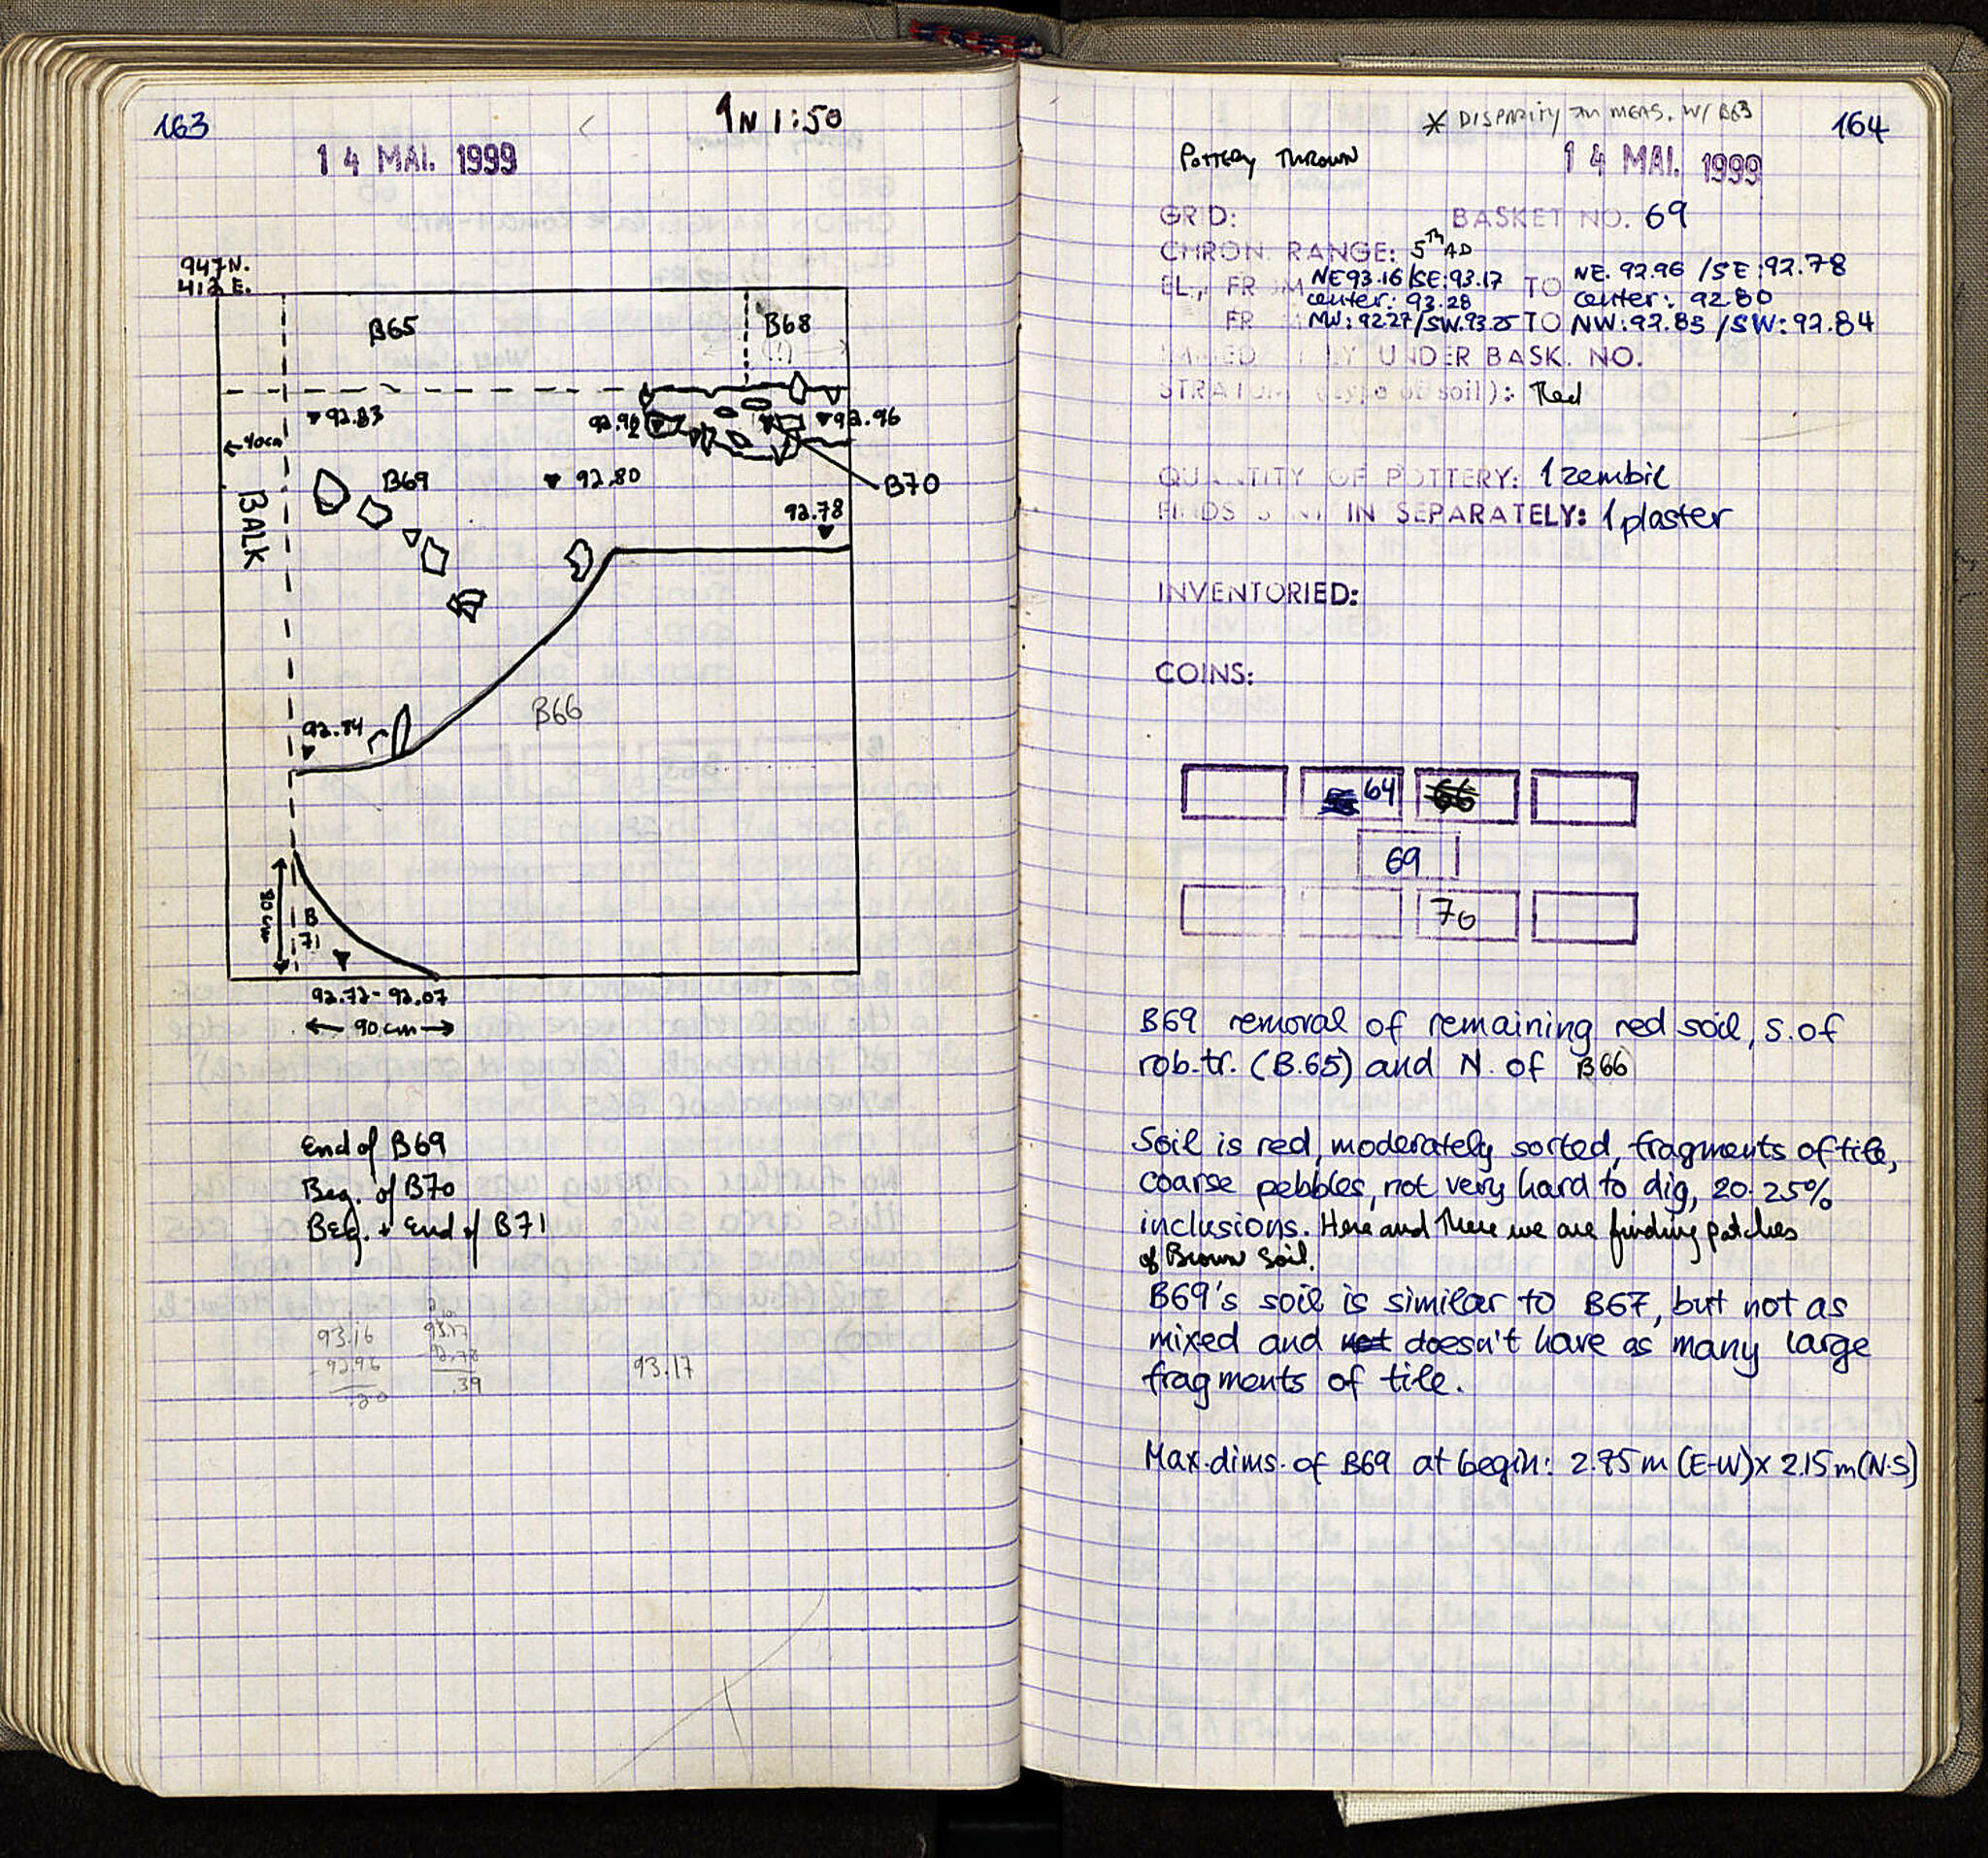 163
N 1:50
14 MAI. 1999
947N.
412 E.
B65
B68
(!)
92.83
92.96
92.96
40cm
BALK
B69
92.80
B70
92.78
92.84
B66
B
71
92.72 - 92.07
90 cm
End of B69
Beg. of B70
Beg. + End of B71
93.16
- 92.96
.20
93.17
- 92.78
.39
93.17
* DISPARITY IN MEAS. W/ B63
164
Pottery Thrown
14 MAI. 1999
GRID:
BASKET NO. 69
CHRON. RANGE: 5th AD
EL., FROM NE 93.16/SE:93.17 TO NE. 92.96 /SE:92.78
center: 93.28 center: 92.80
FR NW: 92.27/SW.93.25 TO NW:92.83 /SW: 92.84
UNDER BASK. NO.
STRATUM (type of soil): Red
QUANTITY OF POTTERY: 1 zembil
FINDS SENT IN SEPARATELY: 1 plaster
INVENTORIED:
COINS:
64 66
69
70
B69 removal of remaining red soil, S. of
rob. tr. (B.65) and N. of B66
Soil is red, moderately sorted, fragments of tile,
coarse pebbles, not very hard to dig, 20-25%
inclusions. Here and there we are finding patches
of Brown Soil.
B69's soil is similar to B67, but not as
mixed and not doesn't have as many large
fragments of tile.
Max. dims. of B69 at begin: 2.85 m (E-W) x 2.15 m (N-S)